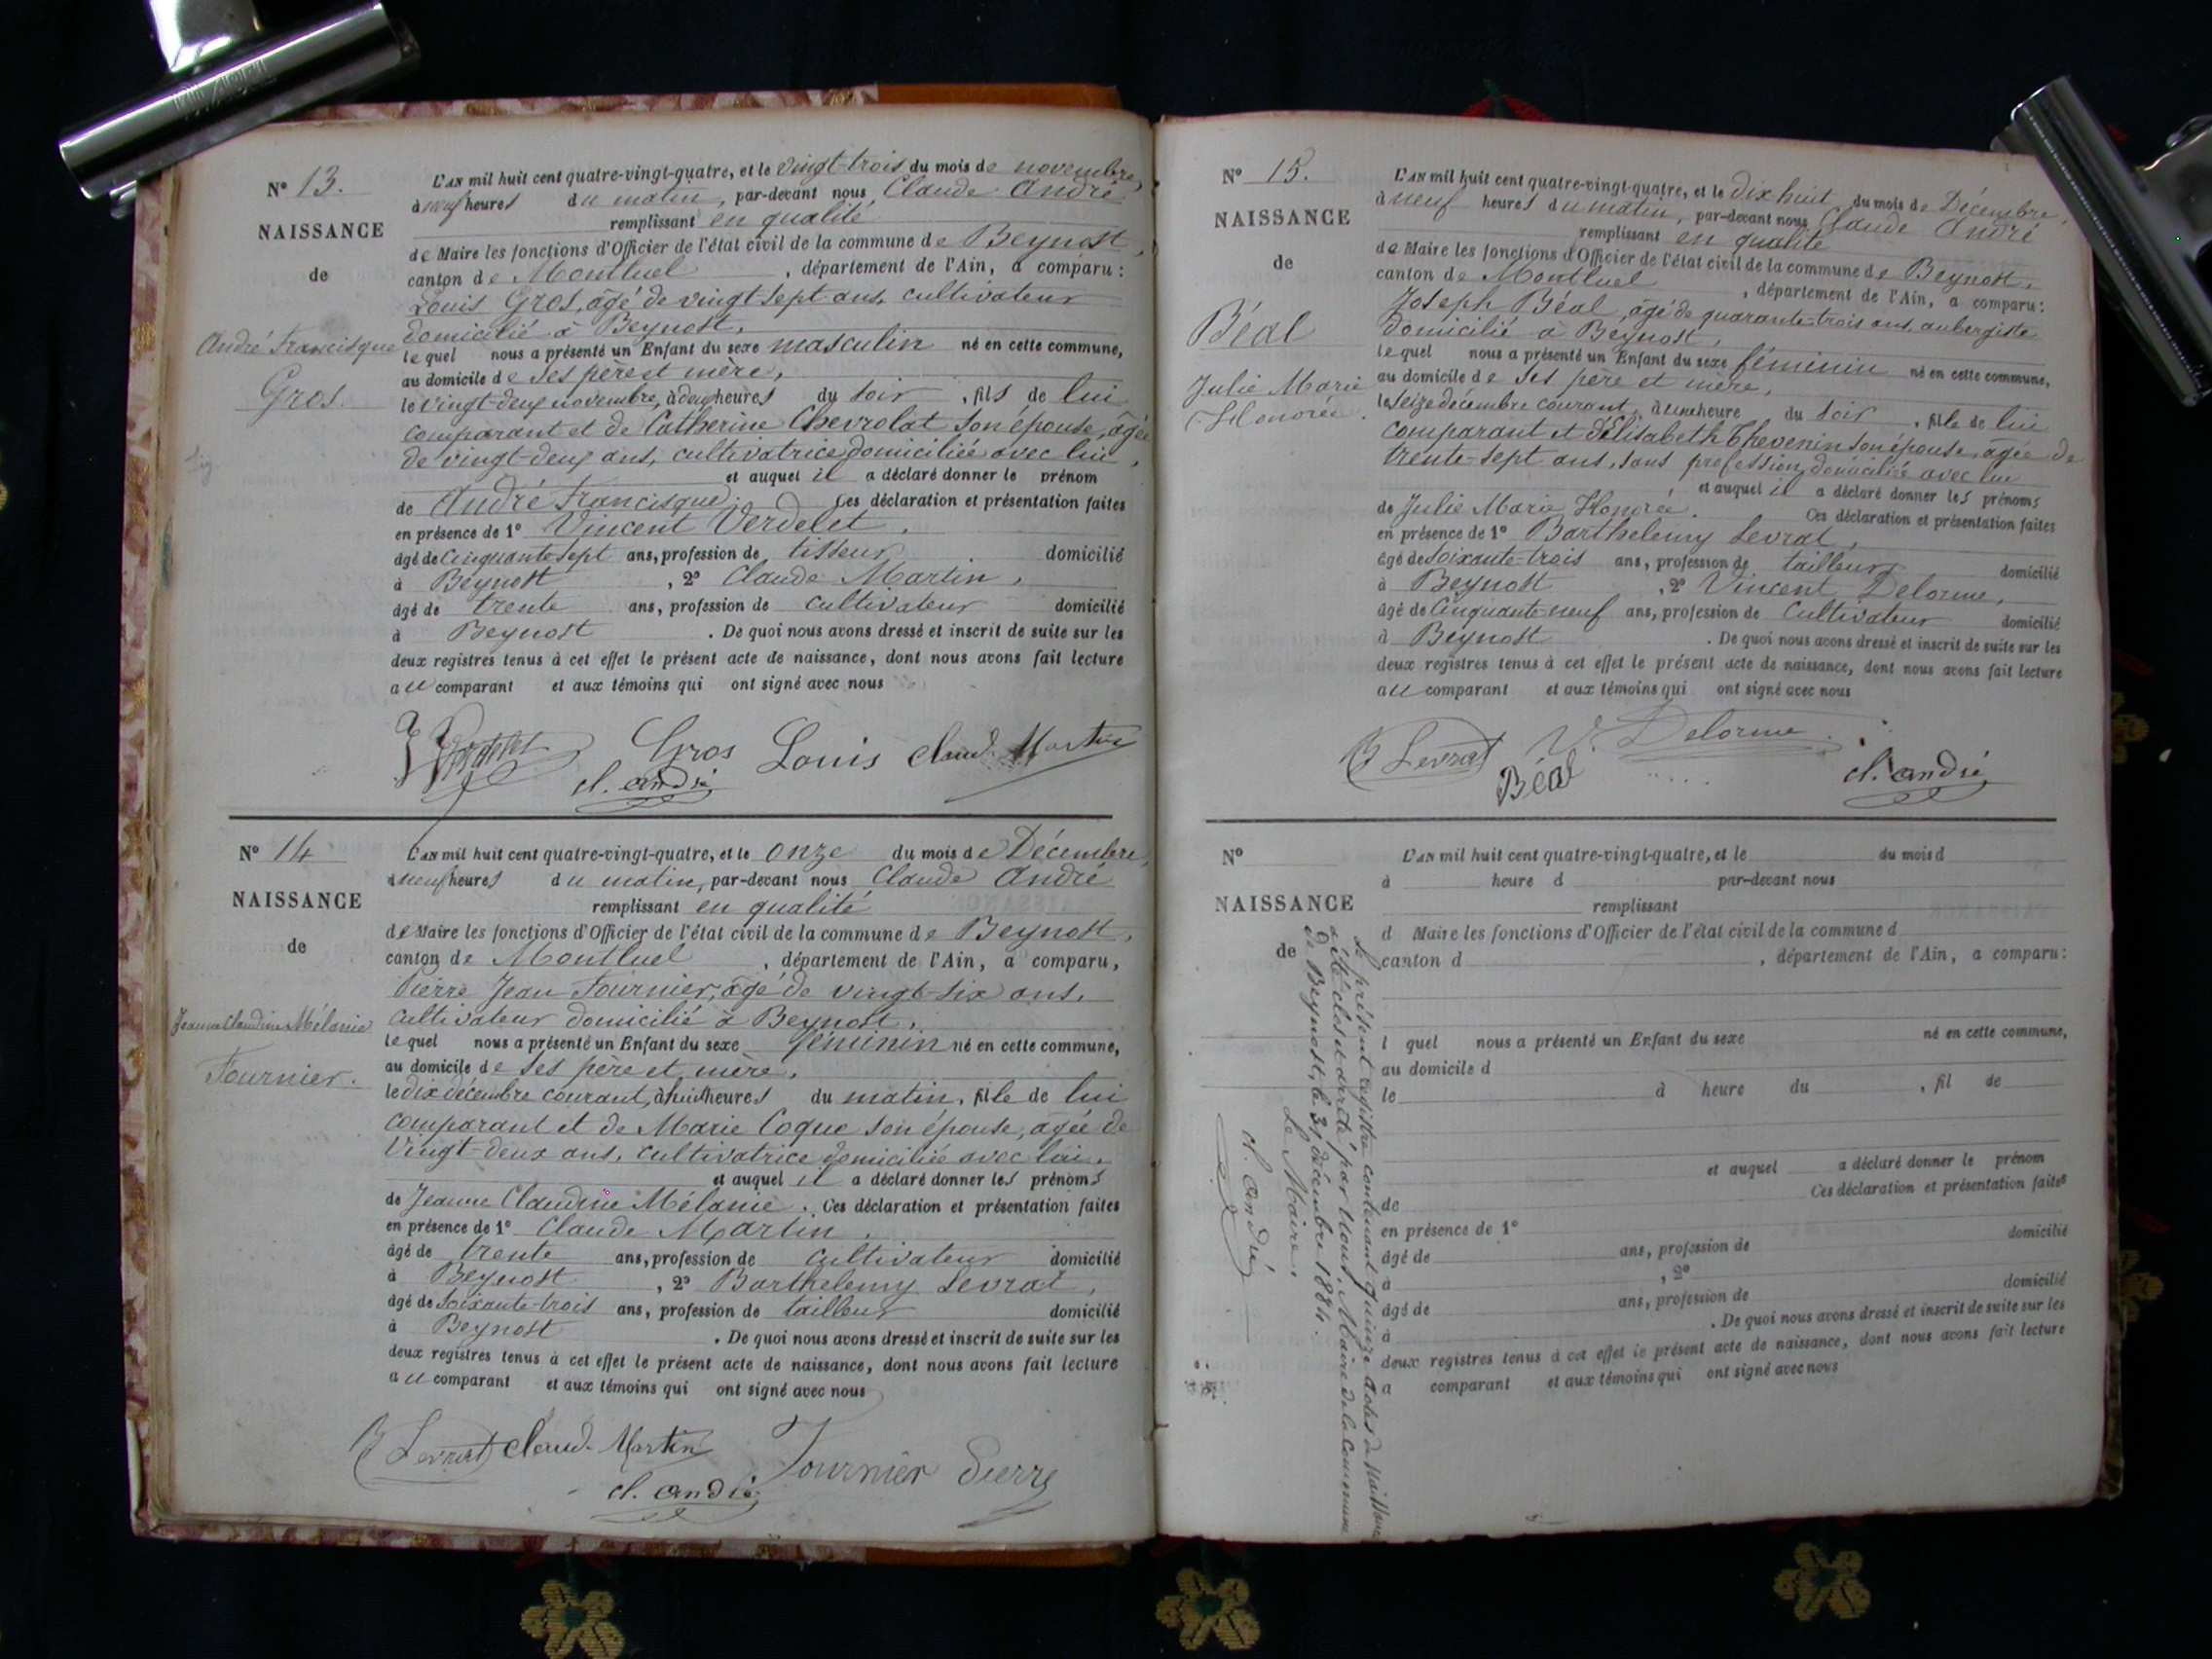 N° 13.
NAISSANCE
de
André Francisque
Gros.
L'AN mil huit cent quatre-vingt-quatre, et le vingt-trois du mois de novembre,
à neuf heures du matin, par-devant nous Claude André
remplissant en qualité
de Maire les fonctions d'Officier de l'état civil de la commune de Beynost,
canton de Montluel, département de l'Ain, a comparu:
Louis Gros, âgé de vingt sept ans, cultivateur
domicilié à Beynost,
lequel nous a présenté un Enfant du sexe masculin né en cette commune,
au domicile de ses père et mère,
le vingt-deux novembre, à deux heures du soir, fils de lui
comparant et de Catherine Chevrolat son épouse, âgée
de vingt-deux ans, cultivatrice domiciliée avec lui,
et auquel il a déclaré donner le prénom
de André Francisque. Ces déclaration et présentation faites
en présence de 1° Vincent Verdelet,
âgé de cinquante sept ans, profession de tisseur domicilié
à Beynost, 2° Claude Martin,
âgé de trente ans, profession de cultivateur domicilié
à Beynost. De quoi nous avons dressé et inscrit de suite sur les
deux registres tenus à cet effet le présent acte de naissance, dont nous avons fait lecture
au comparant et aux témoins qui ont signé avec nous
Verdelet Gros Louis Claud. Martin
cl. andré
N° 14
NAISSANCE
de
Jeanne Claudine Mélanie
Fournier.
L'AN mil huit cent quatre-vingt-quatre, et le onze du mois de Décembre,
à neuf heures du matin, par-devant nous Claude André
remplissant en qualité
de Maire les fonctions d'Officier de l'état civil de la commune de Beynost,
canton de Montluel, département de l'Ain, a comparu,
Pierre Jean Fournier, âgé de vingt-six ans,
cultivateur domicilié à Beynost,
lequel nous a présenté un Enfant du sexe féminin né en cette commune,
au domicile de ses père et mère,
le dix décembre courant, à huit heures du matin, fille de lui
comparant et de Marie Coque son épouse, âgée de
vingt-deux ans, cultivatrice domiciliée avec lui,
et auquel il a déclaré donner les prénoms
de Jeanne Claudine Mélanie. Ces déclaration et présentation faites
en présence de 1° Claude Martin,
âgé de trente ans, profession de cultivateur domicilié
à Beynost, 2° Barthelemy Levrat,
âgé de soixante-trois ans, profession de tailleur domicilié
à Beynost. De quoi nous avons dressé et inscrit de suite sur les
deux registres tenus à cet effet le présent acte de naissance, dont nous avons fait lecture
au comparant et aux témoins qui ont signé avec nous
B Levrat Claud. Martin Fournier Pierre
cl. andré
N° 15.
NAISSANCE
de
Béal
Julie Marie
Honorée.
L'AN mil huit cent quatre-vingt-quatre, et le dix huit du mois de Décembre,
à neuf heures du matin, par-devant nous Claude André
remplissant en qualité
de Maire les fonctions d'Officier de l'état civil de la commune de Beynost,
canton de Montluel, département de l'Ain, a comparu:
Joseph Béal, âgé de quarante-trois ans, aubergiste
domicilié à Beynost,
lequel nous a présenté un Enfant du sexe féminin né en cette commune,
au domicile de ses père et mère,
le seize décembre courant, à une heure du soir, fille de lui
comparant et d'Elisabeth Thevenin son épouse, âgée de
trente-sept ans, sans profession, domiciliée avec lui
et auquel il a déclaré donner les prénoms
de Julie Marie Honorée. Ces déclaration et présentation faites
en présence de 1° Barthelemy Levrat,
âgé de soixante-trois ans, profession de tailleur domicilié
à Beynost, 2° Vincent Delorme,
âgé de cinquante-neuf ans, profession de cultivateur domicilié
à Beynost. De quoi nous avons dressé et inscrit de suite sur les
deux registres tenus à cet effet le présent acte de naissance, dont nous avons fait lecture
au comparant et aux témoins qui ont signé avec nous
B Levrat V. Delorme
Béal cl. andré
N°
NAISSANCE
de
L'AN mil huit cent quatre-vingt-quatre, et le du mois d
à heure d par-devant nous
remplissant
d Maire les fonctions d'Officier de l'état civil de la commune d
canton d , département de l'Ain, a comparu:
l quel nous a présenté un Enfant du sexe né en cette commune,
au domicile d
le à heure du , fil de
et auquel a déclaré donner le prénom
de Ces déclaration et présentation faites
en présence de 1°
âgé de ans, profession de domicilié
à , 2°
âgé de ans, profession de domicilié
à . De quoi nous avons dressé et inscrit de suite sur les
deux registres tenus à cet effet le présent acte de naissance, dont nous avons fait lecture
a comparant et aux témoins qui ont signé avec nous
Le présent registre contenant quinze actes de Naissance
a été clos et arrêté par Nous, Maire de la commune
de Beynost, le 31 décembre 1884.
Le Maire,
cl. andré